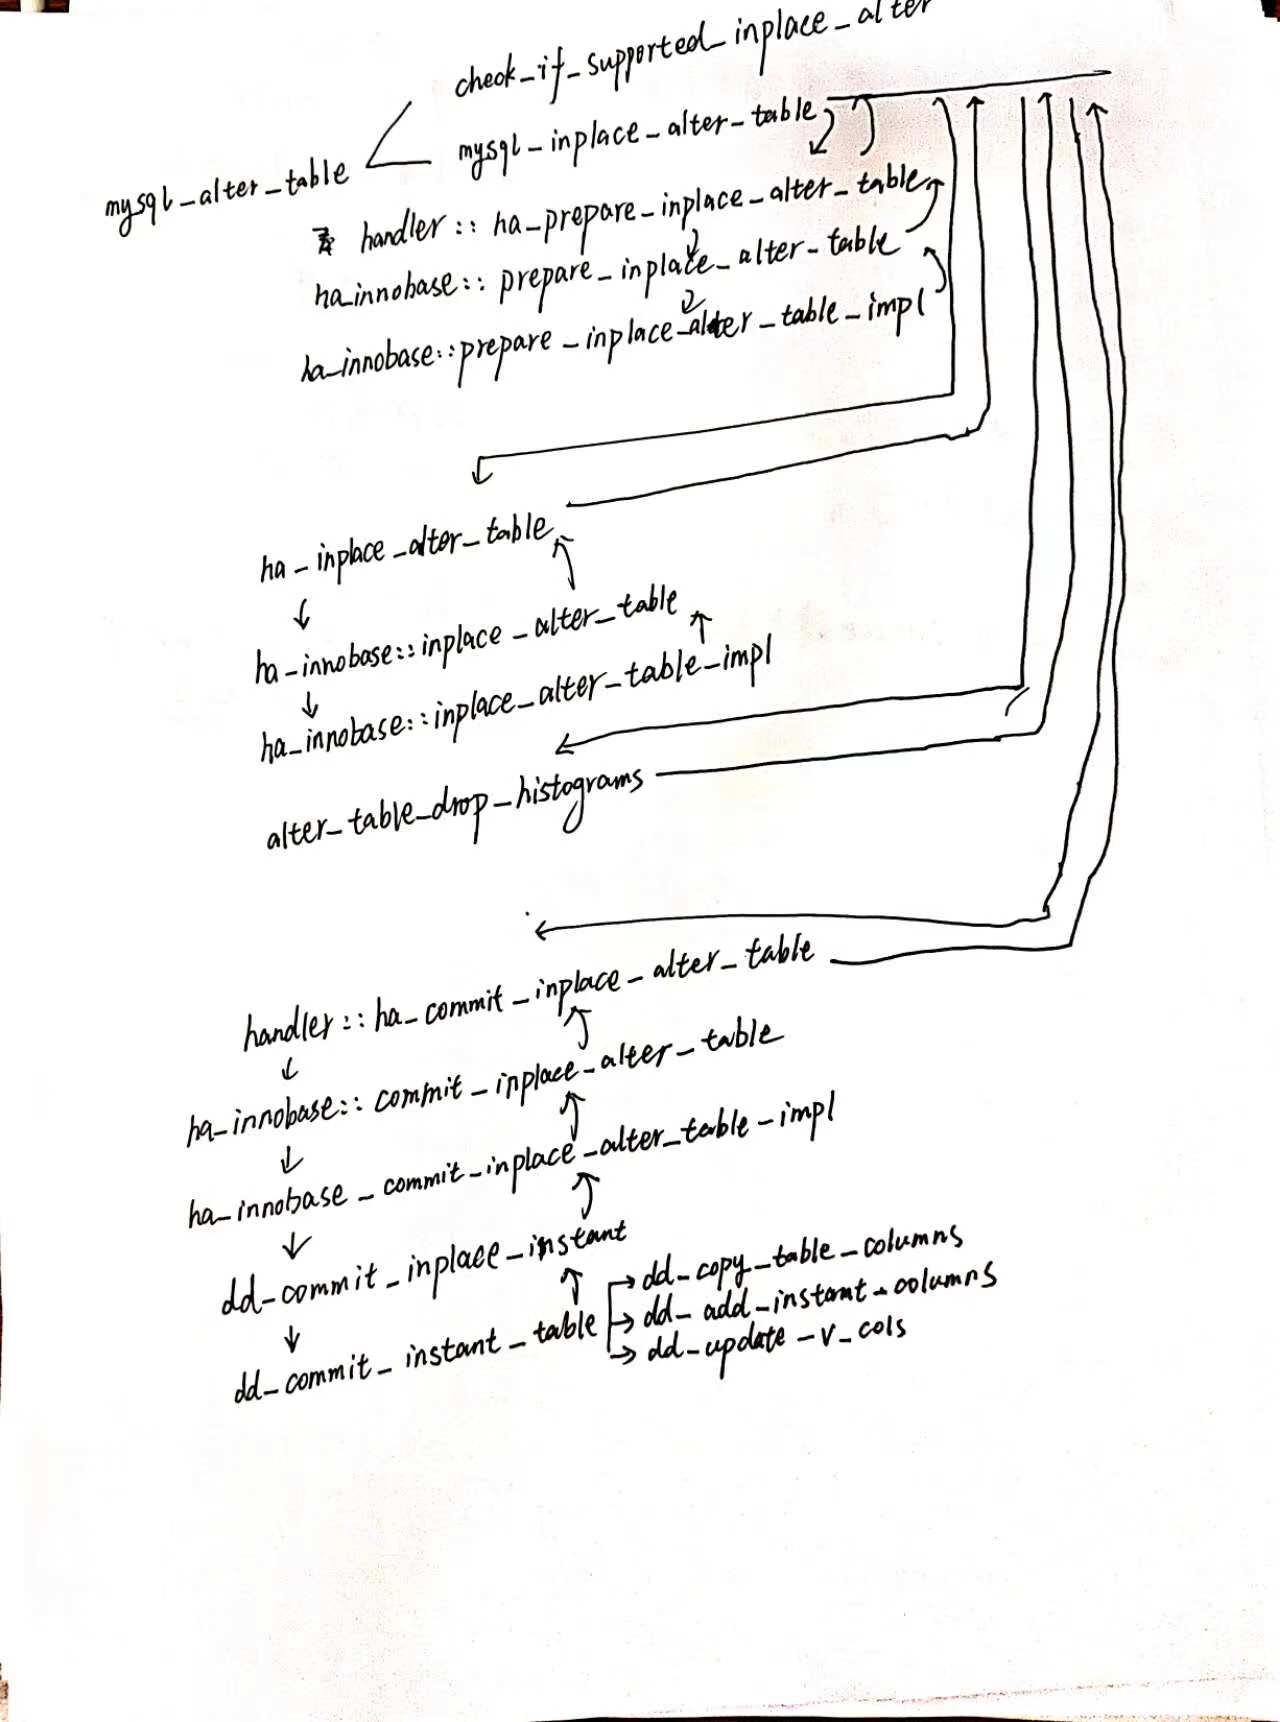 check_if_supported_inplace_alter
mysql_inplace_alter_table
mysql_alter_table
handler :: ha_prepare_inplace_alter_table
ha_innobase :: prepare_inplace_alter_table
ha_innobase::prepare_inplace_alter_table_impl
ha_inplace_alter_table
ha_innobase::inplace_alter_table
ha_innobase::inplace_alter_table_impl
alter_table_drop_histograms
handler :: ha_commit_inplace_alter_table
ha_innobase:: commit_inplace_alter_table
ha_innobase_commit_inplace_alter_table_impl
dd_commit_inplace_instant
dd_copy_table_columns
dd_add_instant_columns
dd_commit_instant_table
dd_update_v_cols